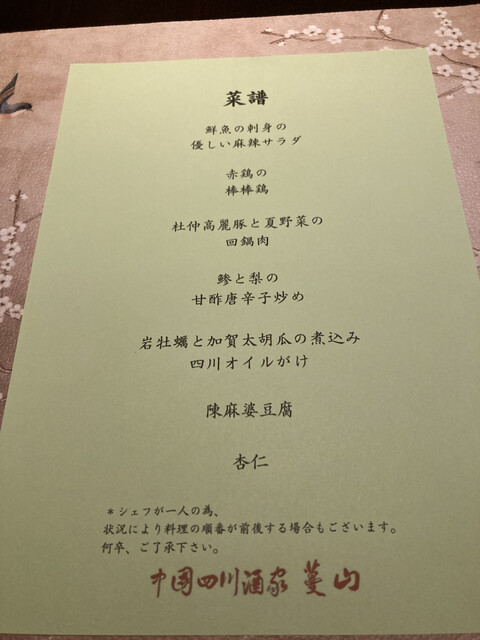 菜譜
鮮魚の刺身の
優しい麻辣サラダ
赤鶏の
棒棒鶏
杜仲高麗豚と夏野菜の
回鍋肉
鯵と梨の
甘酢唐辛子炒め
岩牡蠣と加賀太胡瓜の煮込み
四川オイルがけ
陳麻婆豆腐
杏仁
*シェフが一人の為、
状況により料理の順番が前後する場合もございます。
何卒、ご了承下さい。
中国四川酒家 蔓山